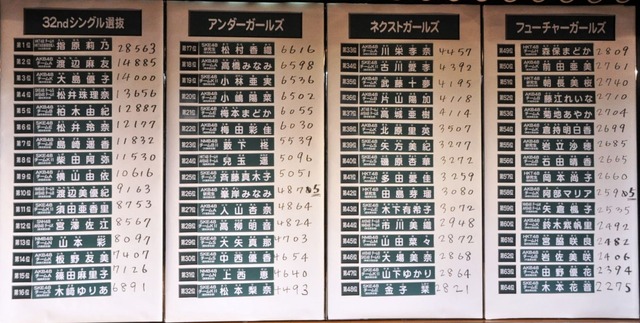 32ndシングル選抜
第1位 指原莉乃 28563
第2位 渡辺麻友 14885
第3位 大島優子 14000
第4位 松井珠理奈 13656
第5位 柏木由紀 12887
第6位 松井玲奈 12177
第7位 島崎遥香 11832
第8位 柴田阿弥 11530
第9位 横山由依 10616
第10位 渡辺美優紀 9163
第11位 須田亜香里 8753
第12位 宮澤佐江 8567
第13位 山本彩 8097
第14位 板野友美 7407
第15位 篠田麻里子 7126
第16位 木﨑ゆりあ 6891
アンダーガールズ
第17位 松村香織 6616
第18位 高橋みなみ 6598
第19位 小林亜実 6536
第20位 小嶋陽菜 6502
第21位 梅本まどか 6055
第22位 梅田彩佳 6030
第23位 薮下柊 5539
第24位 兒玉遥 5096
第25位 斉藤真木子 5051
第26位 峯岸みなみ
第27位 入山杏奈 4864
第28位 高柳明音 4824
第29位 大矢真那 4703
第30位 中西優香 4654
第31位 上西恵 4640
第32位 松本梨奈 4493
ネクストガールズ
第33位 川栄李奈 4457
第34位 古川愛李 4392
第35位 武藤十夢 4195
第36位 片山陽加 4118
第37位 高城亜樹 4114
第38位 北原里英 3507
第39位 矢方美紀 3277
第40位 篠原栞那 3272
第41位 多田愛佳 3259
第42位 田島芽瑠 3080
第43位 木下有希子 3072
第44位 市川美織 2948
第45位 山田菜々 2872
第46位 大場美奈 2868
第47位 山下ゆかり 2864
第48位 金子栞 2821
フューチャーガールズ
第49位 森保まどか 2809
第50位 前田亜美 2761
第51位 朝長美桜 2740
第52位 藤江れいな 2710
第53位 菊地あやか 2704
第54位 倉持明日香 2699
第55位 岩立沙穂 2685
第56位 石田晴香 2665
第57位 岡本尚子 2660
第58位 阿部マリア
第59位 矢倉楓子 2535
第60位 鈴木紫帆里 2492
第61位 宮脇咲良 2482
第62位 岩佐美咲 2406
第63位 田野優花 2394
第64位 木本花音 2275